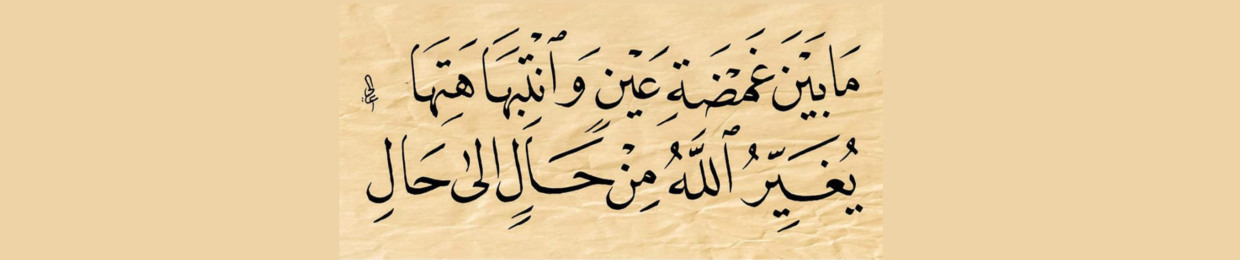 مَا بَيْنَ غَمْضَةِ عَيْنٍ وَٱنْتِبهَا هَتِهَا
يُغَيِّرُ ٱللَّهُ مِنْ حَالٍ الىٰ حَالِ